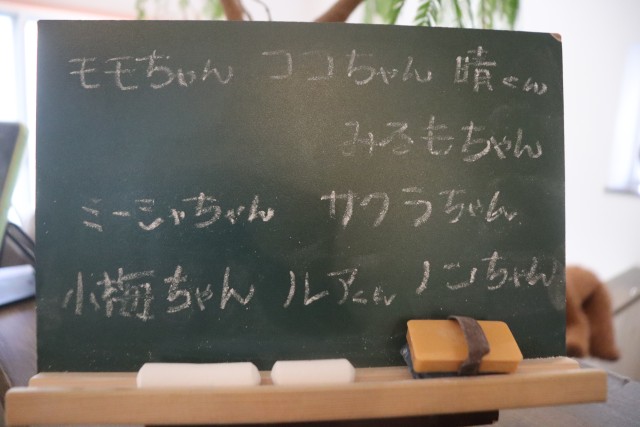 モモちゃん ココちゃん 晴くん
みるもちゃん
ミーシャちゃん サクラちゃん
小梅ちゃん ルアくん ノンちゃん